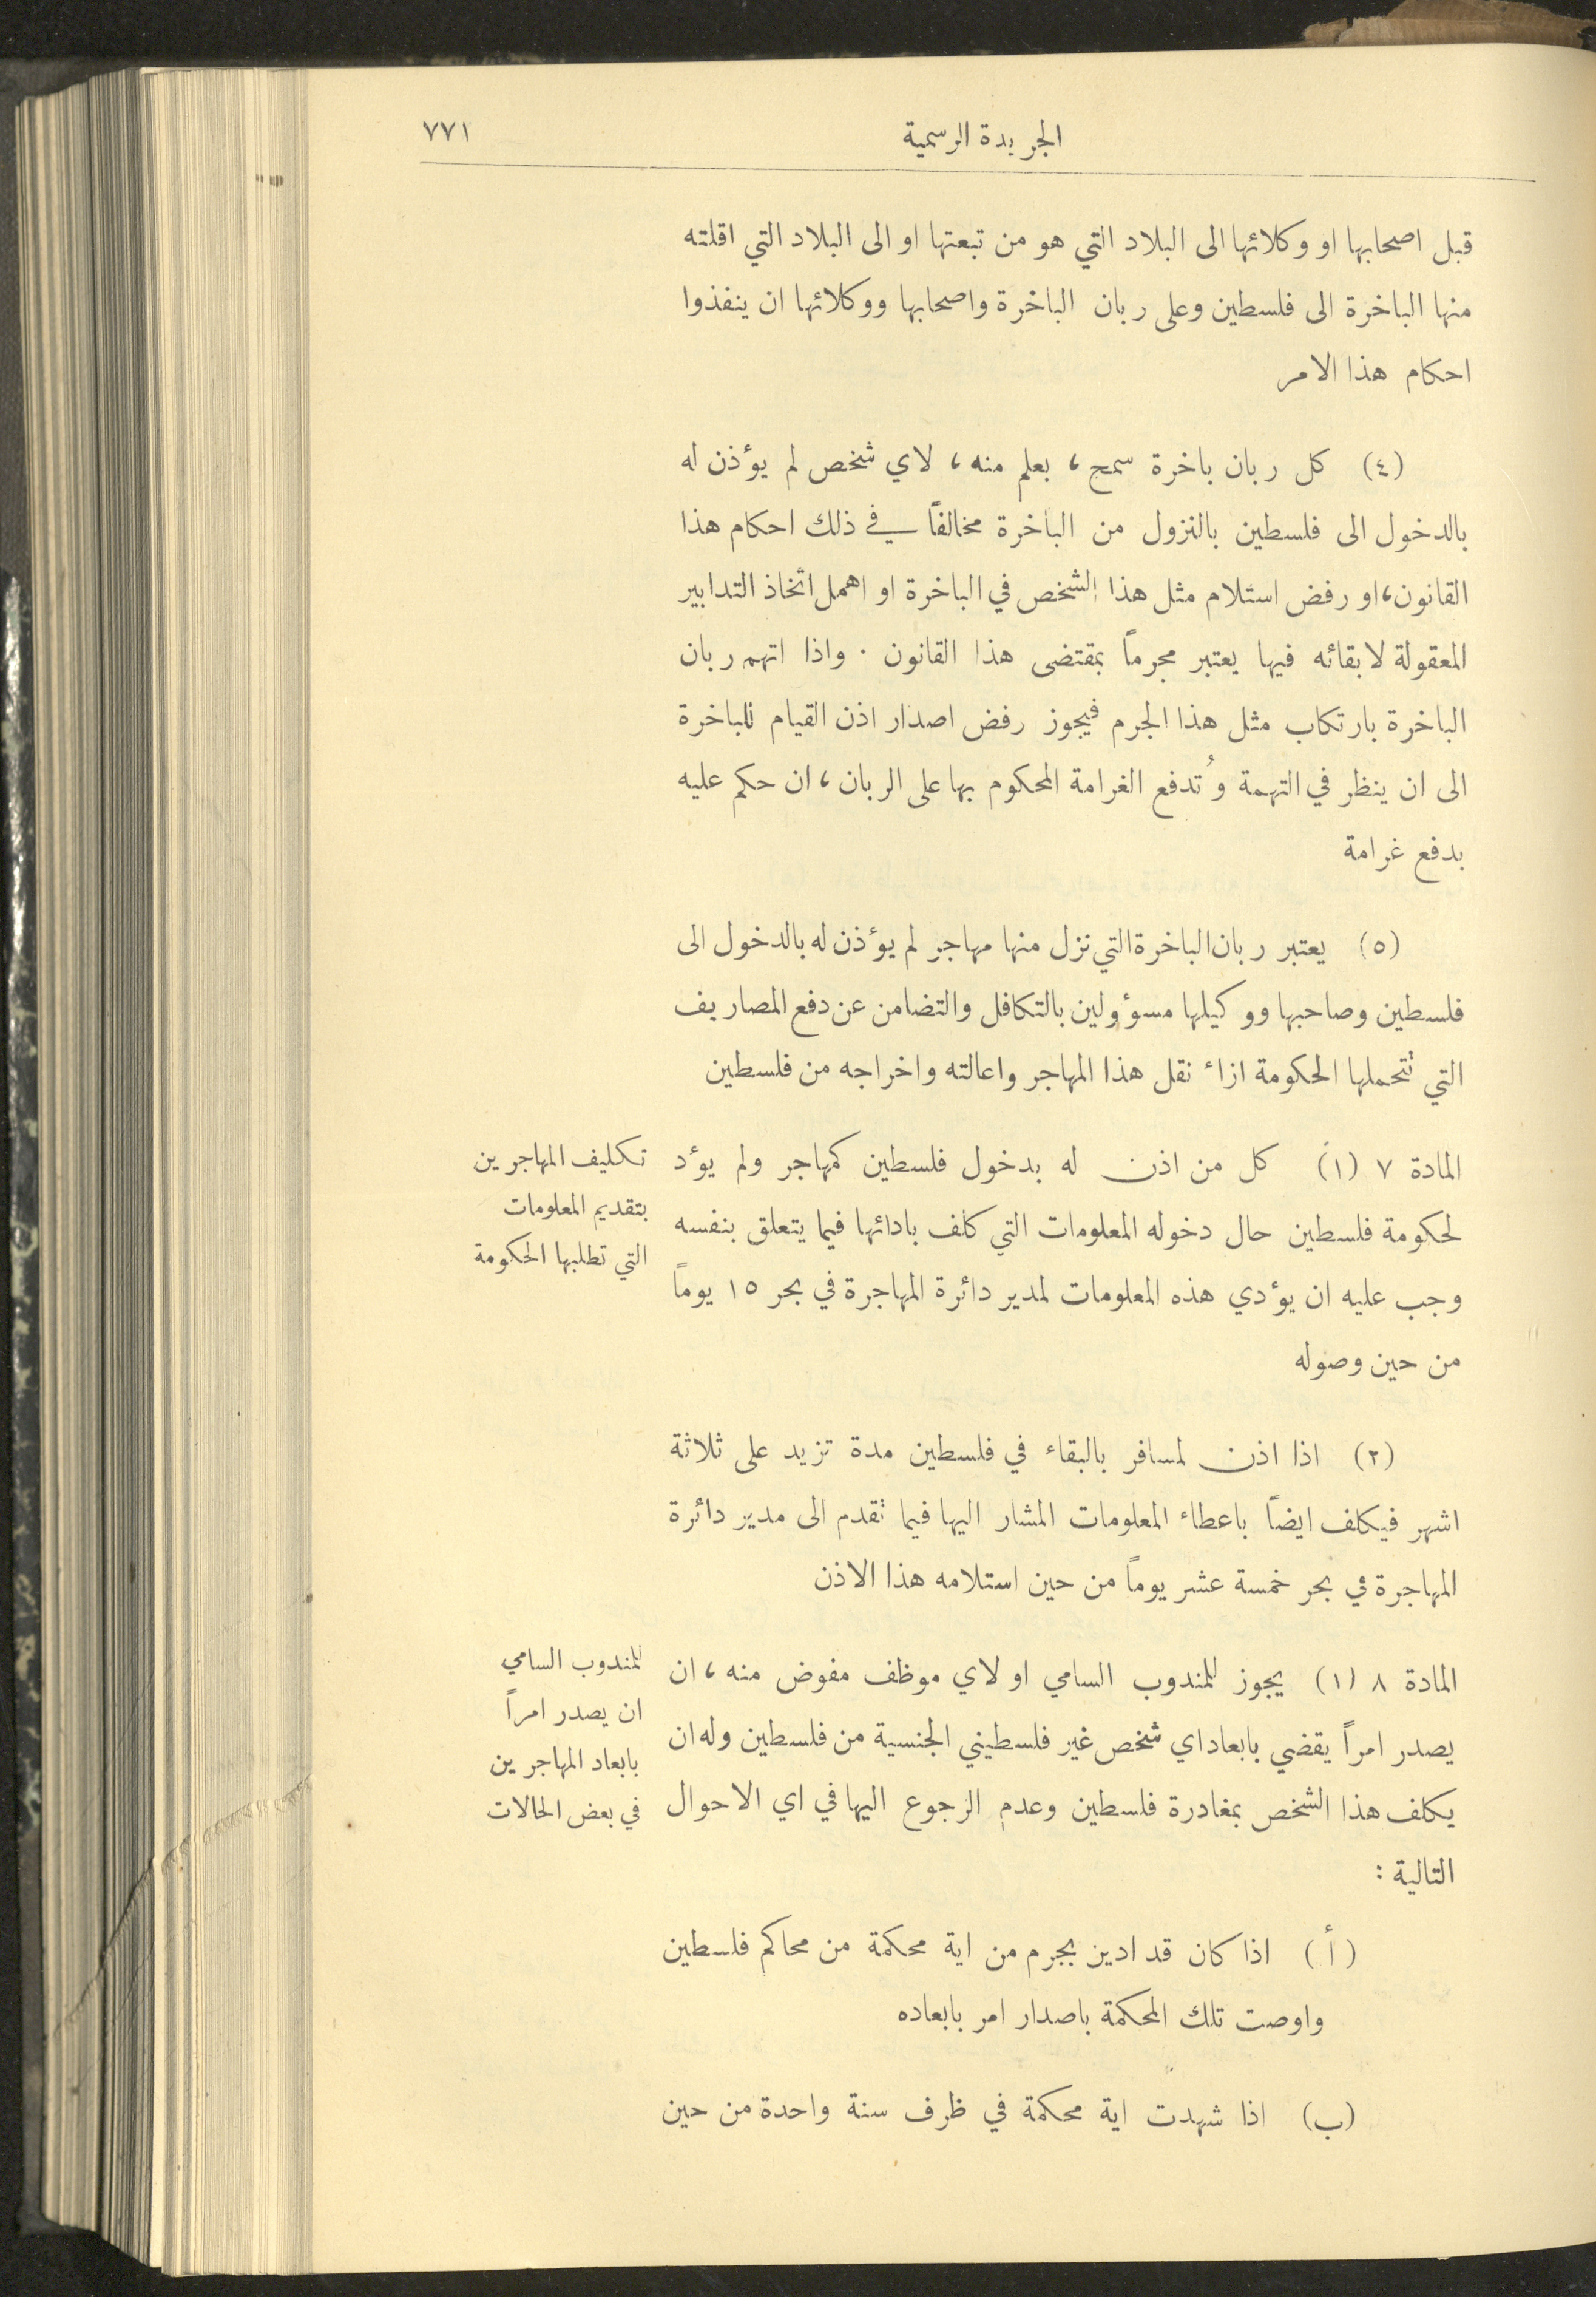 الجريدة الرسمية
٧٧١
قبل اصحابها او وكلائها الى البلاد التي هو من تبعتها او الى البلاد التي اقلته
منها الباخرة الى فلسطين وعلى ربان الباخرة واصحابها ووكلائها ان ينفذوا
احكام هذا الامر
(٤) كل ربان باخرة سمح، بعلم منه، لاي شخص لم يؤذن له
بالدخول الى فلسطين بالنزول من الباخرة مخالفاً في ذلك احكام هذا
القانون، او رفض استلام مثل هذا الشخص في الباخرة او اهمل اتخاذ التدابير
المعقولة لابقائه فيها يعتبر مجرماً بمقتضى هذا القانون . واذا اتهم ربان
الباخرة بارتكاب مثل هذا الجرم فيجوز رفض اصدار اذن القيام للباخرة
الى ان ينظر في التهمة وُتدفع الغرامة المحكوم بها على الربان، ان حكم عليه
بدفع غرامة
(٥) يعتبر ربان الباخرة التي نزل منها مهاجر لم يؤذن له بالدخول الى
فلسطين وصاحبها ووكيلها مسؤولين بالتكافل والتضامن عن دفع المصاريف
التي تتحملها الحكومة ازاء نقل هذا المهاجر واعالته واخراجه من فلسطين
المادة ٧ (١) كل من اذن له بدخول فلسطين كمهاجر ولم يؤد
لحكومة فلسطين حال دخوله المعلومات التي كلف بادائها فيما يتعلق بنفسه
وجب عليه ان يؤدي هذه المعلومات لمدير دائرة المهاجرة في بحر ١٥ يوماً
من حين وصوله
تكليف المهاجرين
بتقديم المعلومات
التي تطلبها الحكومة
(٢) اذا اذن لمسافر بالبقاء في فلسطين مدة تزيد على ثلاثة
اشهر فيكلف ايضاً باعطاء المعلومات المشار اليها فيما تقدم الى مدير دائرة
المهاجرة في بحر خمسة عشر يوماً من حين استلامه هذا الاذن
المادة ٨ (١) يجوز للمندوب السامي او لاي موظف مفوض منه، ان
يصدر امراً يقضي بابعاد اي شخص غير فلسطيني الجنسية من فلسطين وله ان
يكلف هذا الشخص بمغادرة فلسطين وعدم الرجوع اليها في اي الاحوال
التالية :
للمندوب السامي
ان يصدر امراً
بابعاد المهاجرين
في بعض الحالات
(أ) اذا كان قد ادين بجرم من اية محكمة من محاكم فلسطين
واوصت تلك المحكمة باصدار امر بابعاده
(ب) اذا شهدت اية محكمة في ظرف سنة واحدة من حين